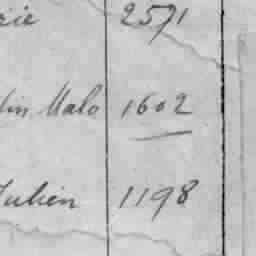 rie 2571
lin Malo 1602
Julien 1198